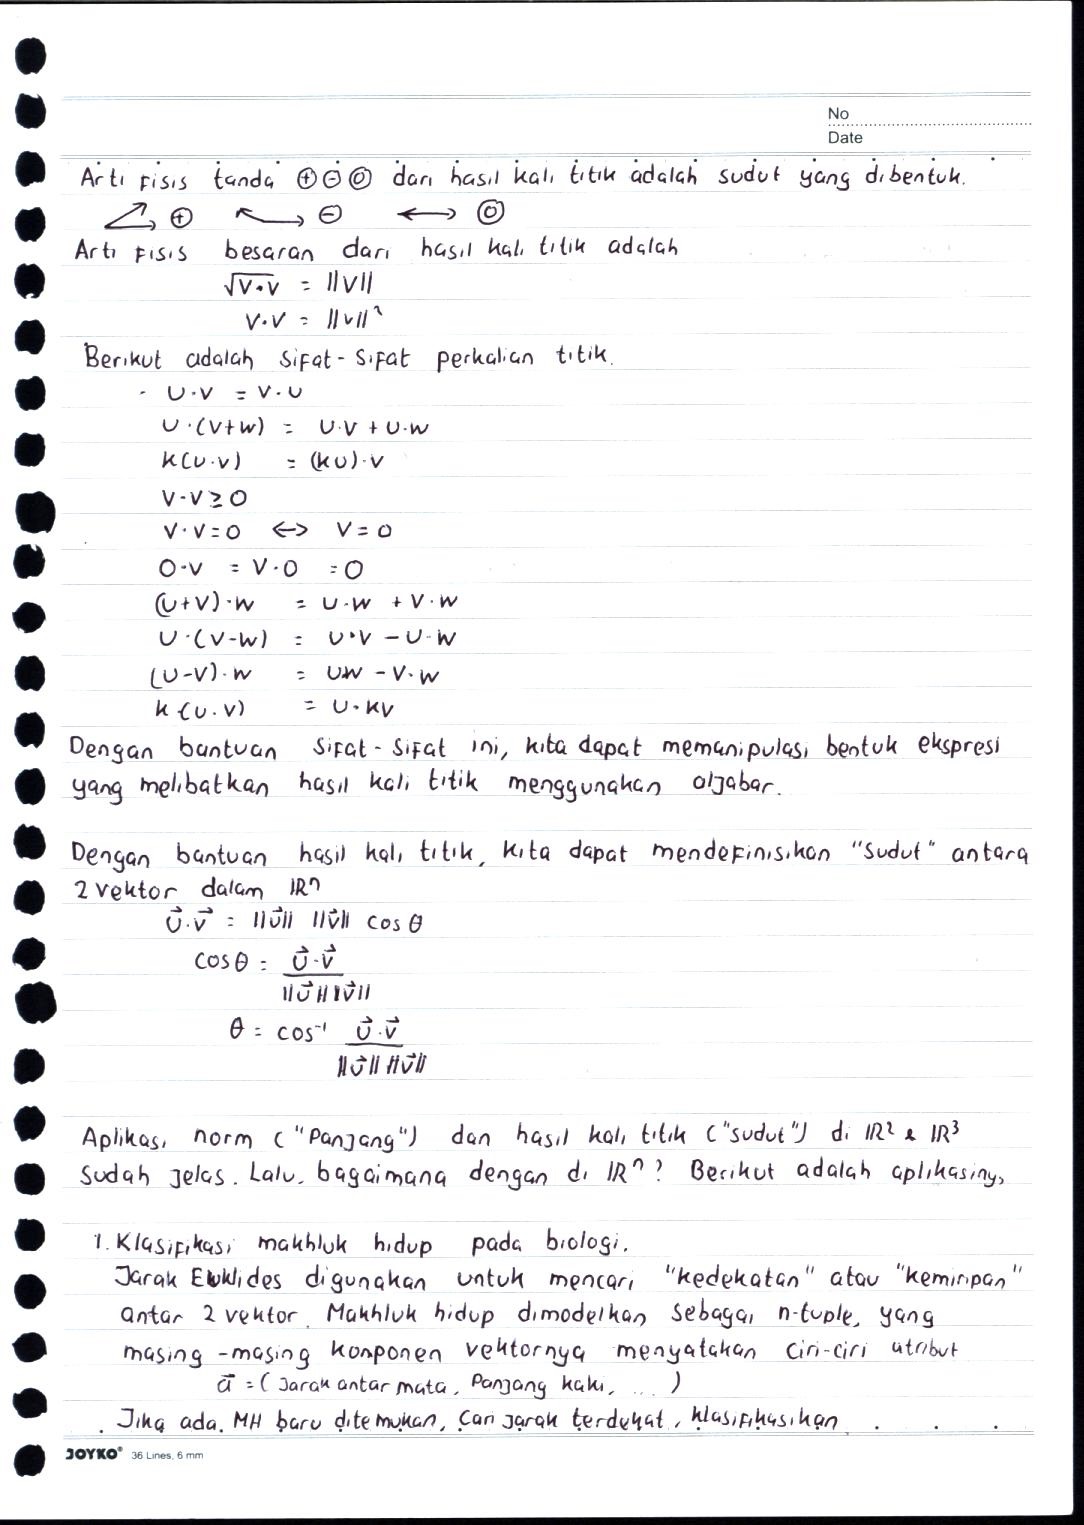 No
Date
Arti fisis tanda ⊕ ⊖ ⓪ dari hasil kali titik adalah sudut yang dibentuk.
⊕ ⊖ ⓪
Arti fisis besaran dari hasil kali titik adalah
√V·V = ||V||
V·V = ||V||²
Berikut adalah sifat-sifat perkalian titik.
- U·V = V·U
U·(V+W) = U·V + U·W
k(U·V) = (kU)·V
V·V ≥ 0
V·V = 0 ↔ V = 0
0·V = V·0 = 0
(U+V)·W = U·W + V·W
U·(V-W) = U·V - U·W
(U-V)·W = UW - V·W
k(U.V) = U·kV
Dengan bantuan sifat-sifat ini, kita dapat memanipulasi bentuk ekspresi
yang melibatkan hasil kali titik menggunakan aljabar.
Dengan bantuan hasil kali titik, kita dapat mendefinisikan "sudut" antara
2 vektor dalam ℝⁿ
U⃗·V⃗ = ||U⃗|| ||V⃗|| cos θ
cos θ = U⃗·V⃗
||U⃗|| ||V⃗||
θ = cos⁻¹ U⃗·V⃗
||U⃗|| ||V⃗||
Aplikasi norm ("Panjang") dan hasil kali titik ("sudut") di ℝ² & ℝ³
sudah jelas. Lalu, bagaimana dengan di ℝⁿ? Berikut adalah aplikasiny,
1. Klasifikasi makhluk hidup pada biologi.
Jarak Euklides digunakan untuk mencari "kedekatan" atau "kemiripan"
antar 2 vektor. Makhluk hidup dimodelkan sebagai n-tuple, yang
masing-masing komponen vektornya menyatakan ciri-ciri atribut
a⃗ = (Jarak antar mata, Panjang kaki, ...)
Jika ada MH baru ditemukan, cari jarak terdekat, klasifikasikan
JOYKO® 36 Lines, 6 mm